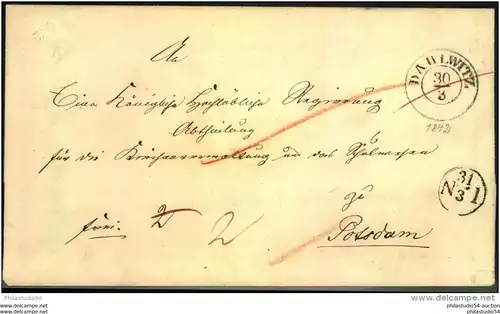 An
DAHLWITZ
30
3
1842
Eine Königliche Hochlöbliche Regierung
Abtheilung
für die Kirchenverwaltung und das Schulwesen
31
N 3 1
zu
frei. 2
Potsdam
Philastudio54 Philastudio54-auction
philastudio54.com philastudio54.com